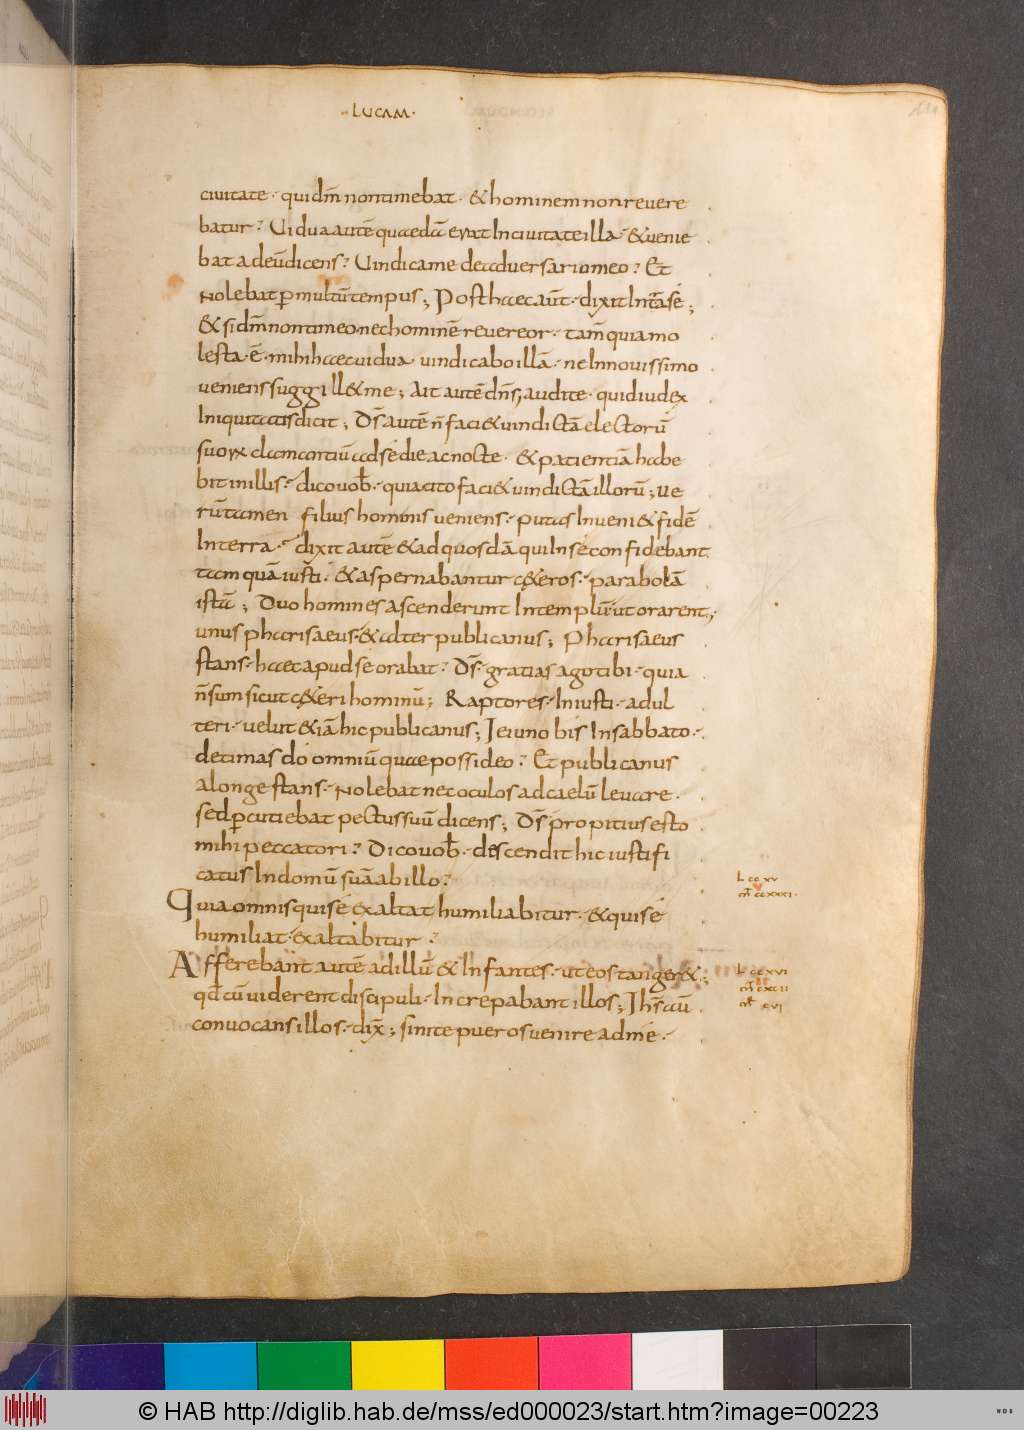 ·LUCAM·
ciuitate · qui dm̄ non timebat · & hominem non reuere
batur · Uidua autē quaedā erat In ciuitate illa · & uenie
bat ad eū dicens · Uindica me de aduersario meo · Et
Nolebat p̄ multū tempus ; Post haec aūt · dixit Intra se ;
& si dm̄ non timeo · nec hominē reuereor · tam̄ quia mo
lesta · ē · mihi haec uidua · uindicabo illā · ne In nouissimo
ueniens suggill& me ; Ait autē dn̄s, audite · quid iudex
Iniquitatis dicit ; Ds̄ autē n̄ faci& uindictā electorū
suorꝝ clamantiū ad se die ac nocte · & patientiā habe
bit in illis · dico uob̄ · quia cito faci& uindictā illorū ; ue
rūtamen filius hominis ueniens · putas Inueni& fidē
In terra · dixit autē & ad quosdā qui In se confidebant
tam quā iusti · & aspernabantur c&eros · parabolā
istā ; Duo homines ascenderunt In templū ut orarent ;
unus pharisaeus · & alter publicanus ; Pharisaeus
stans · haec apud se orabat · Ds̄ · gratias ago tibi · quia
n̄ sum sicut c&eri hominū ; Raptores · Iniusti · adul
teri · uelut & iā hic publicanus ; Ieiuno bis In sabbato ·
decimas do omniū quae possideo · Et publicanus
a longe stans · Nolebat nec oculos ad caelū leuare ·
sed p̄cutiebat pectus suū dicens ; Ds̄ propitius esto
mihi peccatori · Dico uob̄ · descendit hic iustifi
catus In domū suā ab illo ·
Quia omnis qui se exaltat humiliabitur · & qui se
humiliat · exaltabitur ·
Afferebant autē ad illū & Infantes · ut eos tanger& ;
qd̄ cū uiderent discipuli · Increpabant illos ; Ihs̄ aū
conuocans illos · dix̄ ; sinite pueros uenire ad me ·
L cc xv
mt̄ ccxxxi ·
L cc xvi
mt̄ cxcii
mr̄ cvi
© HAB http://diglib.hab.de/mss/ed000023/start.htm?image=00223
WDB